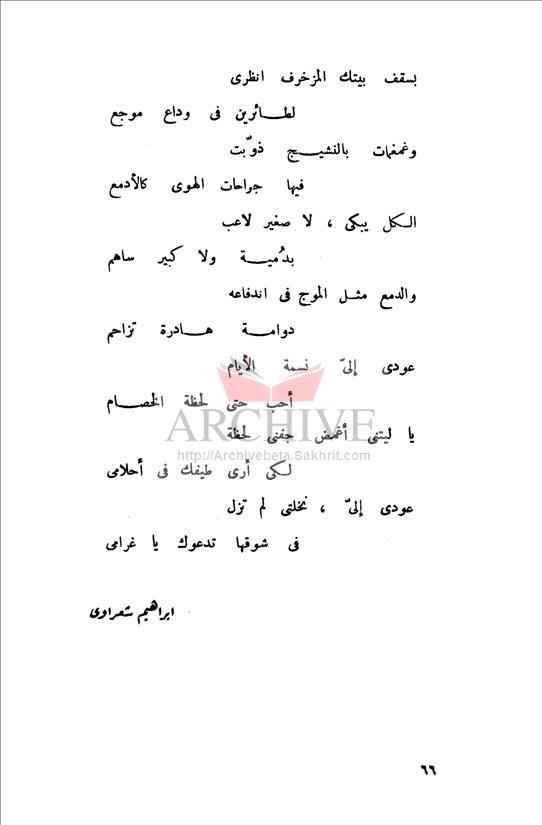 بسقف بيتك المزخرف انظرى
لطائرين فى وداع موجع
وغمغمات بالنشيج ذوّبت
فيها جراحات الهوى كالأدمع
الكل يبكى ، لا صغير لاعب
بدُمية ولا كبير ساهم
والدمع مثل الموج فى اندفاعه
دوامة هادرة تزاحم
عودى إلىّ نسمة الأيام
أحب حتى لحظة الخصام
ARCHIVE
يا ليتنى أغمض جفنى لحظة
http://Archivebeta.Sakhrit.com
لكى أرى طيفك فى أحلامى
عودى إلىّ ، نخلتى لم تزل
فى شوقها تدعوك يا غرامى
ابراهيم شعراوى
٦٦